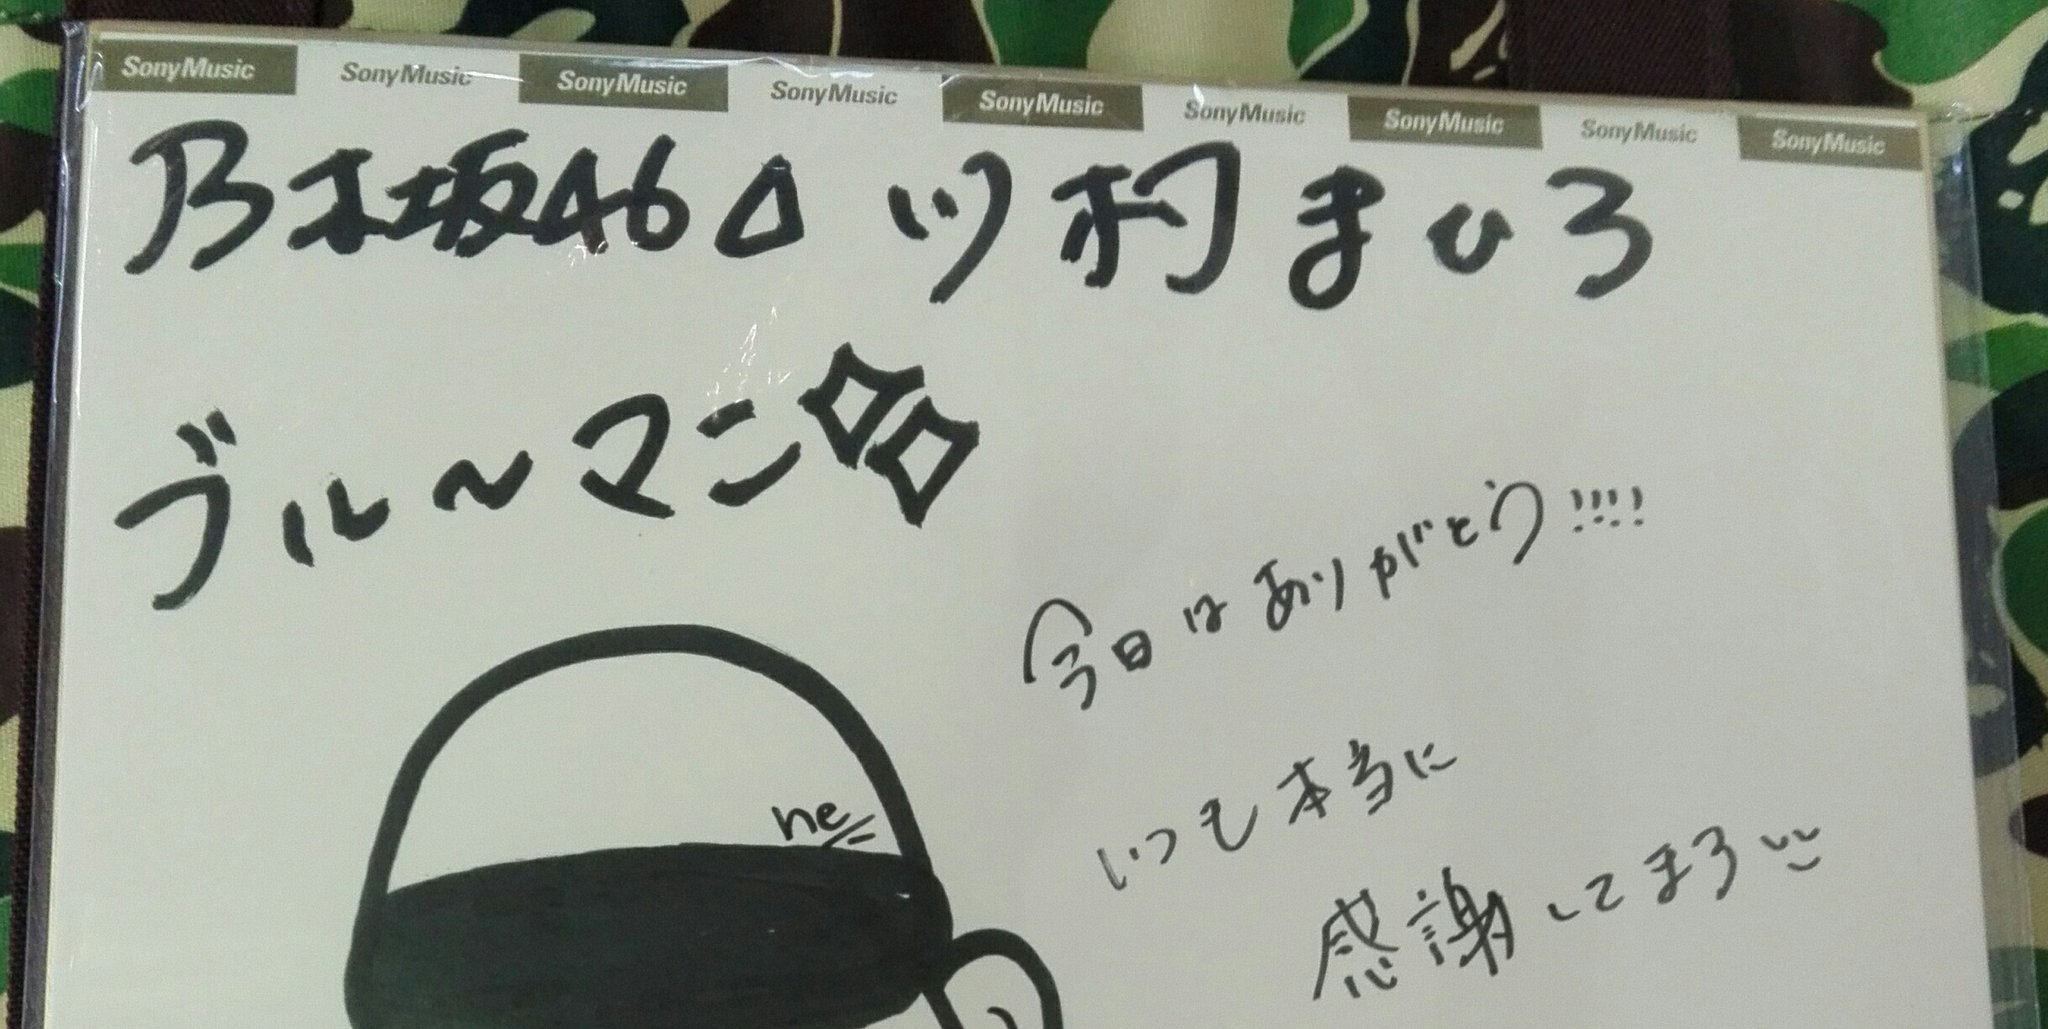 SonyMusic SonyMusic SonyMusic SonyMusic SonyMusic SonyMusic SonyMusic SonyMusic SonyMusic
乃木坂46 △ ツ村まひろ
ブル〜マン
今日はありがとう!!!!
いつも本当に
感謝してまろ
he